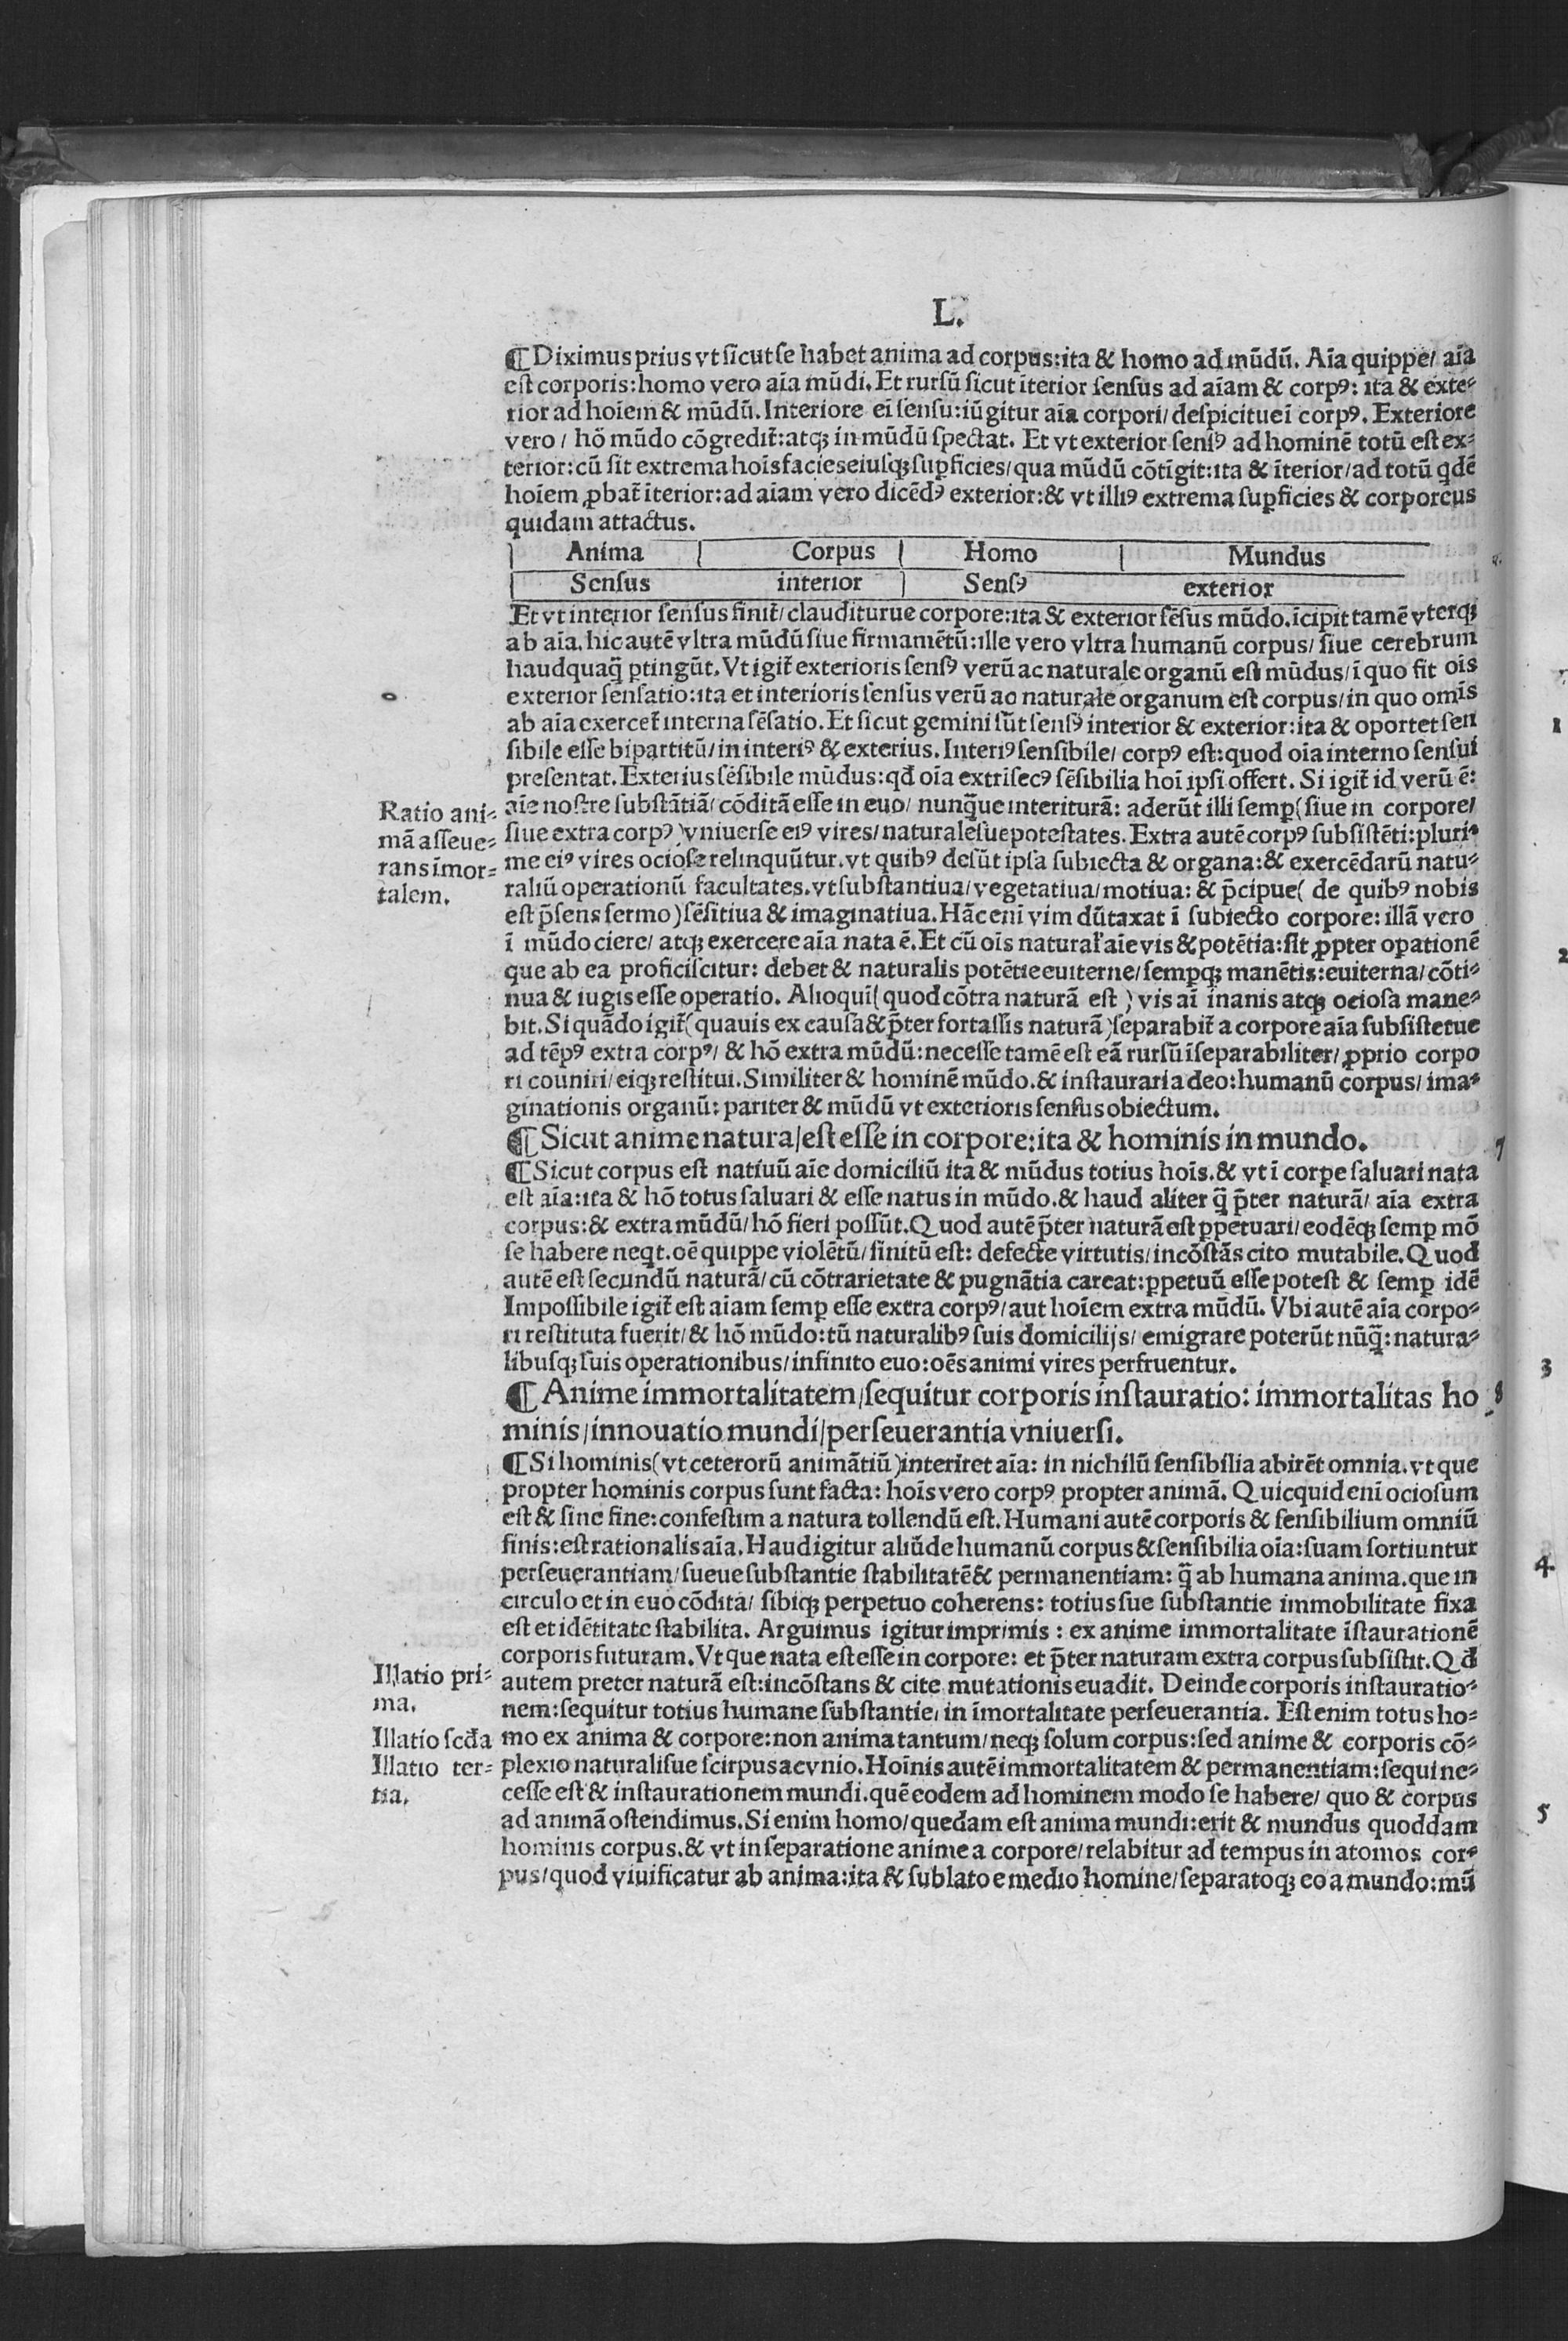 L.
¶ Diximus prius vt sicut se habet anima ad corpus: ita & homo ad mūdū. Aīa quippe/ aīa
est corporis: homo vero aīa mūdi. Et rursū sicut īterior sensus ad aīam & corpꝰ: ita & exte⸗
rior ad hoīem & mūdū. Interiore eī sensu: iūgitur aīa corpori/ despicitueī corpꝰ. Exteriore
vero / hō mūdo cōgredit̄: atqꝫ in mūdū spectat. Et vt exterior sensꝰ ad hominē totū est ex⸗
terior: cū sit extrema hoīs facies eiusqꝫ suꝑficies/ qua mūdū cōtīgit: ita & īterior/ ad totū qdē
hoīem ꝓbat̄ īterior: ad aīam vero dicēdꝰ exterior: & vt illiꝰ extrema suꝑficies & corporeus
quidam attactus.
Anima Corpus Homo Mundus
Sensus interior Sensꝰ exterior
Et vt interior sensus finit̄/ clauditurue corpore: ita & exterior sēsus mūdo. īcipit tamē vterqꝫ
ab aīa. hic autē vltra mūdū siue firmamētū: ille vero vltra humanū corpus/ siue cerebrum
haudquaq̄ ꝑtingūt. Vt igit̄ exterioris sensꝰ verū ac naturale organū est mūdus/ ī quo fit oīs
exterior sensatio: ita et interioris sensus verū ac naturale organum est corpus/ in quo omīs
ab aīa exercet̄ interna sēsatio. Et sicut gemini sūt sensꝰ interior & exterior: ita & oportet sen
sibile esse bipartitū/ in interiꝰ & exterius. Interiꝰ sensibile/ corpꝰ est: quod oīa interno sensui
presentat. Exterius sēsibile mūdus: qđ oīa extrīsecꝰ sēsibilia hoī ipsi offert. Si igit̄ id verū ē:
Ratio ani⸗
mā asseue⸗
rans īmor⸗
talem.
aīe nostre substātiā/ cōditā esse in euo/ nunq̄ue interiturā: aderūt illi semꝑ (siue in corpore/
siue extra corpꝰ) vniuerse eiꝰ vires/ naturalesue potestates. Extra autē corpꝰ subsistēti: pluri⸗
me eiꝰ vires ociose relinquūtur. vt quibꝰ desūt ipsa subiecta & organa: & exercēdarū natu⸗
raliū operationū facultates. vt substantiua/ vegetatiua/ motiua: & p̄cipue (de quibꝰ nobis
est p̄sens sermo) sēsitiua & imaginatiua. Hāc enī vim dūtaxat ī subiecto corpore: illā vero
ī mūdo ciere/ atqꝫ exercere aīa nata ē. Et cū oīs natural' aīe vis & potētia: sit ꝓpter oꝑationē
que ab ea proficiscitur: debet & naturalis potētie euiterne/ semꝑqꝫ manētis: euiterna/ cōti⸗
nua & iugis esse operatio. Alioquī (quod cōtra naturā est) vis aī inanis atqꝫ ociosa mane⸗
bit. Si quādo igit̄ (quauis ex causa & p̄ter fortassis naturā) separabit̄ a corpore aīa subsistetue
ad tēpꝰ extra corpꝰ/ & hō extra mūdū: necesse tamē est eā rursū īseparabiliter/ ꝓprio corpo
ri couniri/ eiqꝫ restitui. Similiter & hominē mūdo. & instaurari a deo: humanū corpus/ ima⸗
ginationis organū: pariter & mūdū vt exterioris sensus obiectum.
¶ Sicut anime natura/ est esse in corpore: ita & hominis in mundo. 7
¶ Sicut corpus est natiuū aīe domiciliū ita & mūdus totius hoīs. & vt ī corpe saluari nata
est aīa: ita & hō totus saluari & esse natus in mūdo. & haud aliter q̄ p̄ter naturā/ aīa extra
corpus: & extra mūdū/ hō fieri possūt. Quod autē p̄ter naturā est ꝑpetuari/ eodēqꝫ semꝑ mō
se habere neqt. oē quippe violētū/ finitū est: defecte virtutis/ incōstās cito mutabile. Quod
autē est secundū naturā/ cū cōtrarietate & pugnātia careat: ꝑpetuū esse potest & semꝑ idē
Impossibile igit̄ est aīam semꝑ esse extra corpꝰ/ aut hoīem extra mūdū. Vbi autē aīa corpo⸗
ri restituta fuerit/ & hō mūdo: tū naturalibꝰ suis domicilijs/ emigrare poterūt nūq̄: natura⸗
libusqꝫ suis operationibus/ infinito euo: oēs animi vires perfruentur.
¶ Anime immortalitatem/ sequitur corporis instauratio: immortalitas ho 8
minis/ innouatio mundi/ perseuerantia vniuersi.
¶ Si hominis (vt ceterorū animātiū) interiret aīa: in nichilū sensibilia abirēt omnia. vt que
propter hominis corpus sunt facta: hoīs vero corpꝰ propter animā. Quicquid enī ociosum
est & sine fine: confestim a natura tollendū est. Humani autē corporis & sensibilium omniū
finis: est rationalis aīa. Haud igitur aliūde humanū corpus & sensibilia oīa: suam sortiuntur
perseuerantiam/ sueue substantie stabilitatē & permanentiam: q̄ ab humana anima. que in
circulo et in euo cōdita/ sibiqꝫ perpetuo coherens: totius sue substantie immobilitate fixa
est et idētitate stabilita. Arguimus igitur imprimis: ex anime immortalitate īstaurationē
corporis futuram. Vt que nata est esse in corpore: et p̄ter naturam extra corpus subsistit. Qđ
Illatio pri⸗
ma.
autem preter naturā est: incōstans & cite mutationis euadit. Deinde corporis instauratio⸗
nem: sequitur totius humane substantie/ in īmortalitate perseuerantia. Est enim totus ho⸗
Illatio scđa
mo ex anima & corpore: non anima tantum/ neqꝫ solum corpus: sed anime & corporis cō⸗
Illatio ter⸗
tia.
plexio naturalisue scirpus ac vnio. Hoīnis autē immortalitatem & permanentiam: sequi ne⸗
cesse est & instaurationem mundi. quē eodem ad hominem modo se habere/ quo & corpus
ad animā ostendimus. Si enim homo/ quedam est anima mundi: erit & mundus quoddam
hominis corpus. & vt in separatione anime a corpore/ relabitur ad tempus in atomos cor⸗
pus/ quod viuificatur ab anima: ita & sublato e medio homine/ separatoqꝫ eo a mundo: mū
1
2
3
4
5